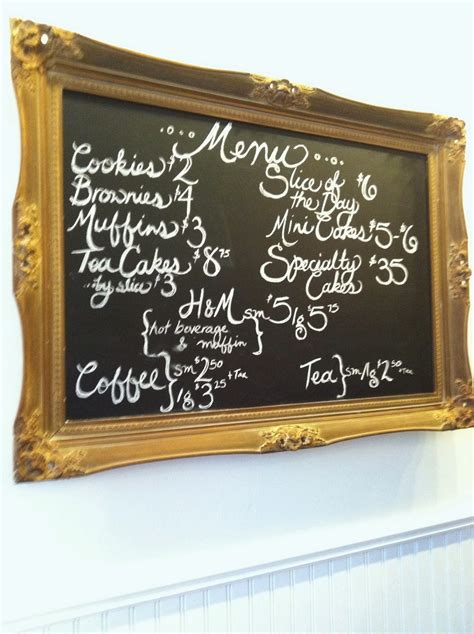 Menu
Cookies $2
Brownies $4
Muffins $3
Tea Cakes $8.75
by slice $3
Slice of the Day $6
Mini Cakes $5-$6
Specialty Cakes $35
H&M sm $5 lg $5.75
{hot beverage & muffin}
Coffee } sm $2.50 + Tax
lg $3.25 + Tax
Tea } sm/lg $2.50 + Tax